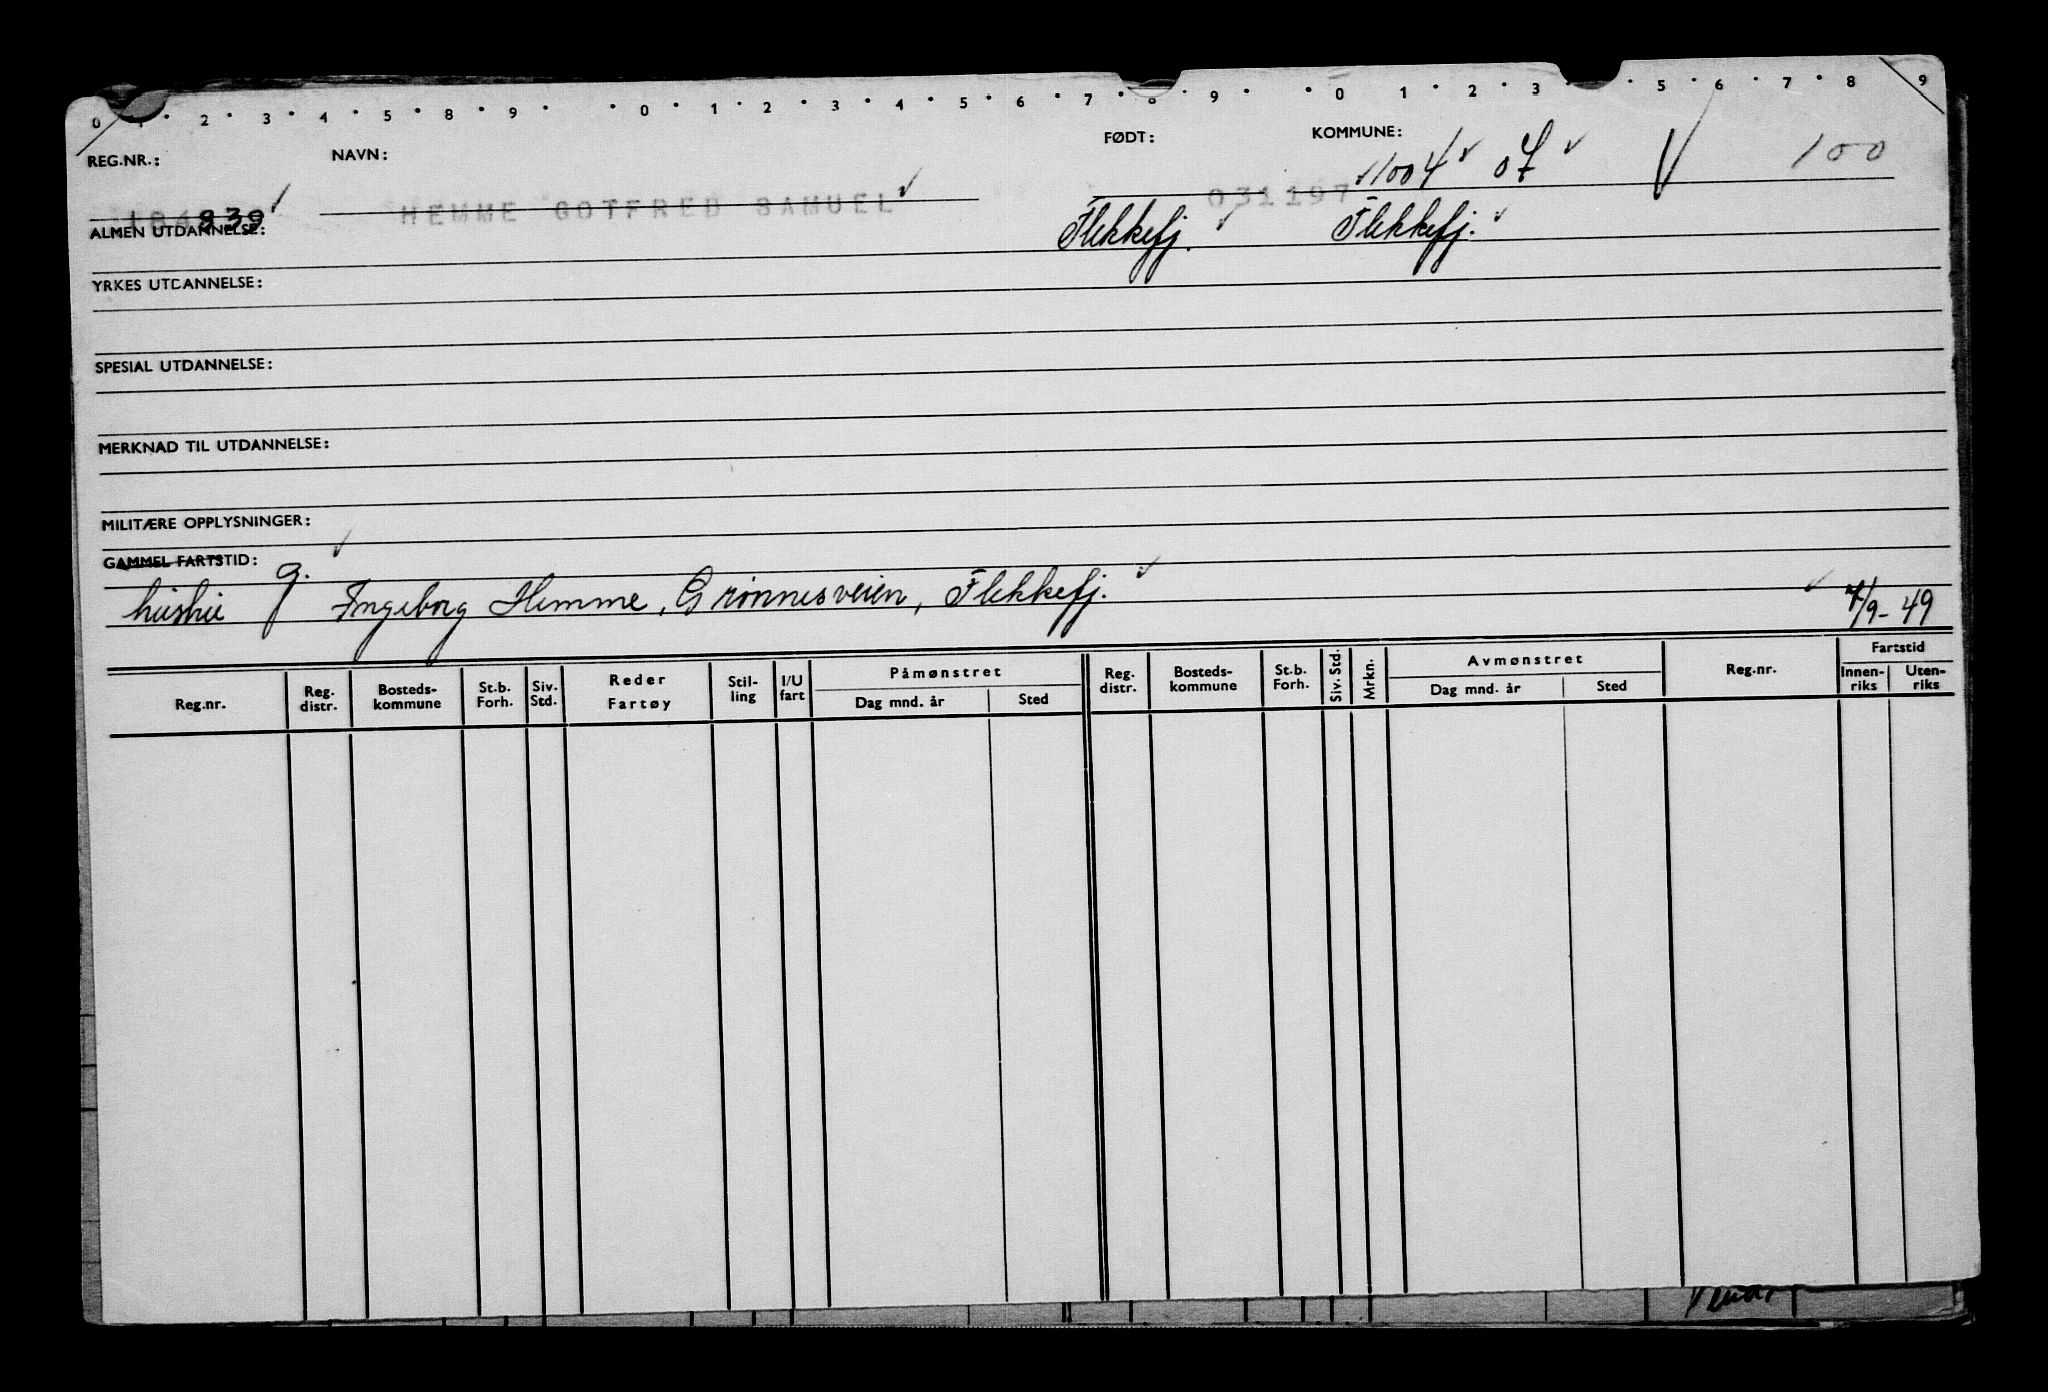 0 1 2 3 4 5 8 9 0 1 2 3 4 5 6 7 8 9 0 1 2 3 5 6 7 8 9
REG.NR.: NAVN: FØDT: KOMMUNE:
1004 07 100
939 HEMME GOTFRED SAMUEL 031197
ALMEN UTDANNELSE: Flekkefj. Flekkefj.
YRKES UTDANNELSE:
SPESIAL UTDANNELSE:
MERKNAD TIL UTDANNELSE:
MILITÆRE OPPLYSNINGER:
GAMMEL FARTSTID:
g. Ingeborg Hemme, Grønnesveien, Flekkefj. 7/9-49
Reg.nr. Reg. distr. Bosteds-kommune St.b. Forh. Siv. Std. Reder Fartøy Stil-ling I/U fart Påmønstret Dag mnd. år Sted Reg. distr. Bosteds-kommune St.b. Forh. Siv. Std. Mrkn. Avmønstret Dag mnd. år Sted Reg.nr. Fartstid Innen-riks Uten-riks